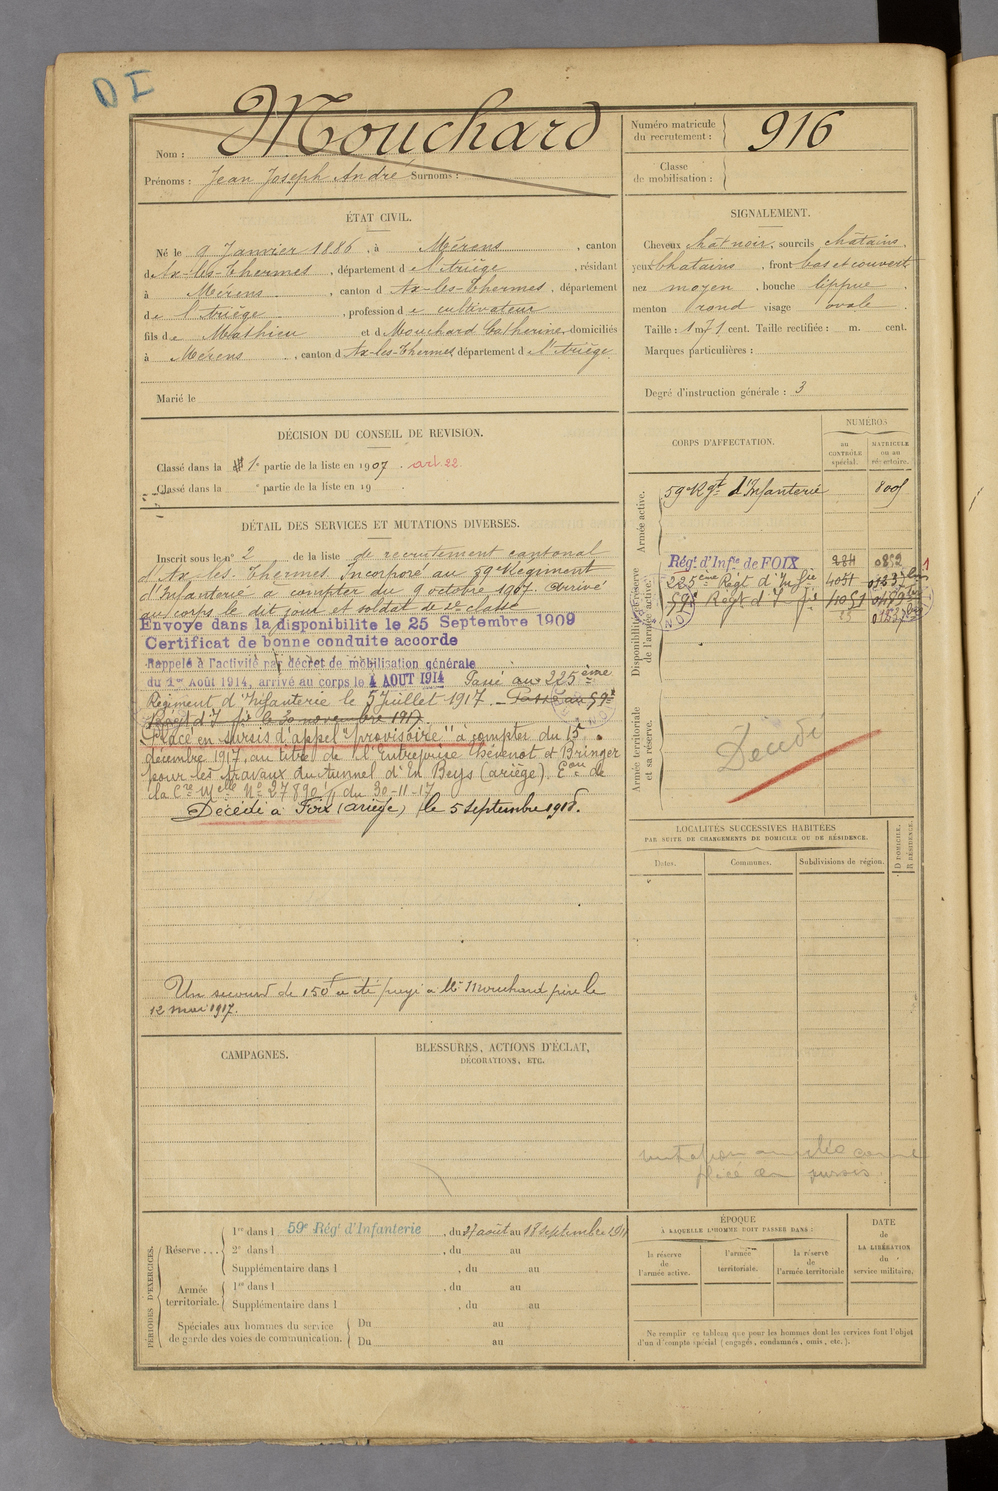 DI
Nom : Mouchard
Prénoms : Jean Joseph André Surnoms :
Numéro matricule du recrutement : 916
Classe de mobilisation :
ÉTAT CIVIL.
Né le 9 Janvier 1886, à Mérens, canton
d'Ax-les-Thermes, département de l'Ariège, résidant
à Mérens, canton d'Ax-les-Thermes, département
de l'Ariège, profession de cultivateur
fils de Mathieu et d Mouchard Catherine, domiciliés
à Mérens, canton d'Ax-les-Thermes, département de l'Ariège.
Marié le
SIGNALEMENT.
Cheveux chât noir, sourcils châtains,
yeux Chatains, front bas et couvert
nez moyen, bouche lippue
menton rond visage ovale
Taille : 1 m 71 cent. Taille rectifiée : m. cent.
Marques particulières :
Degré d'instruction générale : 3
DÉCISION DU CONSEIL DE REVISION.
Classé dans la 1e partie de la liste en 1907. art 22.
Classé dans la e partie de la liste en 19 .
DÉTAIL DES SERVICES ET MUTATIONS DIVERSES.
Inscrit sous le n° 2 de la liste de recrutement cantonal
d'Ax-les-Thermes. Incorporé au 59e Régiment
d'Infanterie à compter du 9 octobre 1907. Arrivé
au corps le dit jour et soldat de 2e classe
Envoyé dans la disponibilité le 25 Septembre 1909
Certificat de bonne conduite accordé
Rappelé à l'activité par décret de mobilisation générale
du 1er Août 1914, arrivé au corps le 4 AOUT 1914 Passé au 225ème
Régiment d'Infanterie le 5 Juillet 1917. Passé au 59e
Regt d'Inf ie le 30 novembre 1917.
Placé en sursis d'appel "provisoire" à compter du 15
décembre 1917, au titre de l'Entreprise Thévenot et Bringer
pour les travaux du tunnel d'En Beys (ariège). Eon de
la Cre Melle No 27890 du 30-11-17
Décédé à Foix (ariège) le 5 septembre 1918.
Un secours de 150f a été payé à Mr Mouchard père le
12 mai 1917.
CORPS D'AFFECTATION.
NUMÉROS
AU CONTRÔLE spécial.
MATRICULE ou au répertoire.
Armée active.
59e Rgt d'Infanterie
Disponibilité et réserve de l'armée active.
Régt d'Infie de FOIX 284 0852
225ème Régt d'Infie 4051
59e Regt d'Infie
Armée territoriale et sa réserve.
Décédé
LOCALITÉS SUCCESSIVES HABITÉES
PAR SUITE DE CHANGEMENTS DE DOMICILE OU DE RÉSIDENCE.
Dates. Communes. Subdivisions de région.
D DOMICILE. R RÉSIDENCE.
CAMPAGNES.
BLESSURES, ACTIONS D'ÉCLAT,
DÉCORATIONS, ETC.
PÉRIODES D'EXERCICES.
Réserve ...
1re dans l 59e Régt d'Infanterie, du 27 août au 18 septembre 1911
2e dans l , du au
Supplémentaire dans l , du au
Armée territoriale.
1re dans l , du au
Supplémentaire dans l , du au
Spéciales aux hommes du service de garde des voies de communication.
Du au
Du au
ÉPOQUE
À LAQUELLE L'HOMME DOIT PASSER DANS :
la réserve de l'armée active.
l'armée territoriale.
la réserve de l'armée territoriale
DATE de LA LIBÉRATION du service militaire.
Ne remplir ce tableau que pour les hommes dont les services font l'objet
d'un d'compte spécial (engagés, condamnés, omis, etc.).